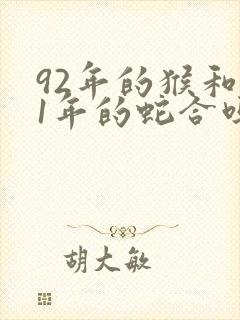 92年的猴和
1年的蛇合
胡大敏